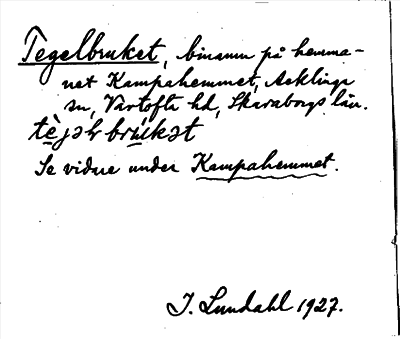 Tegelbruket, binamn på hemma-
net Kampahemmet, Acklinga
sn, Vartofta hd, Skaraborgs län.
tèjəl brúkət
Se vidare under Kampahemmet.
J. Lundahl 1927.